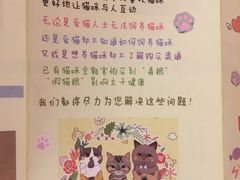 更好地让猫咪与人互动
无论是爱猫人士无法饲养猫咪
还是爱猫却不知道如何饲养猫咪
又或是想养猫却不了解购买渠道
已有猫咪全新害怕买到“毒粮”
“假猫粮”影响主子健康
我们都将尽力为您解决这些问题！